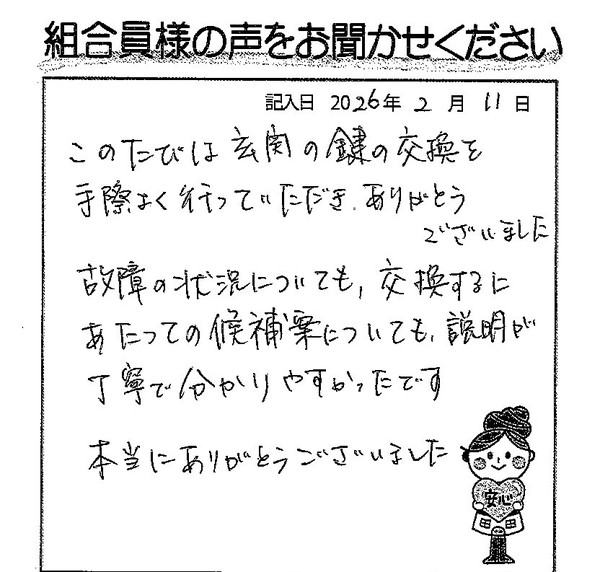 組合員様の声をお聞かせください
記入日 2026年 2月 11日
このたびは玄関の鍵の交換を
手際よく行っていただき、ありがとう
ございました
故障の状況についても、交換するに
あたっての候補案についても、説明が
丁寧で分かりやすかったです
本当にありがとうございました
安心